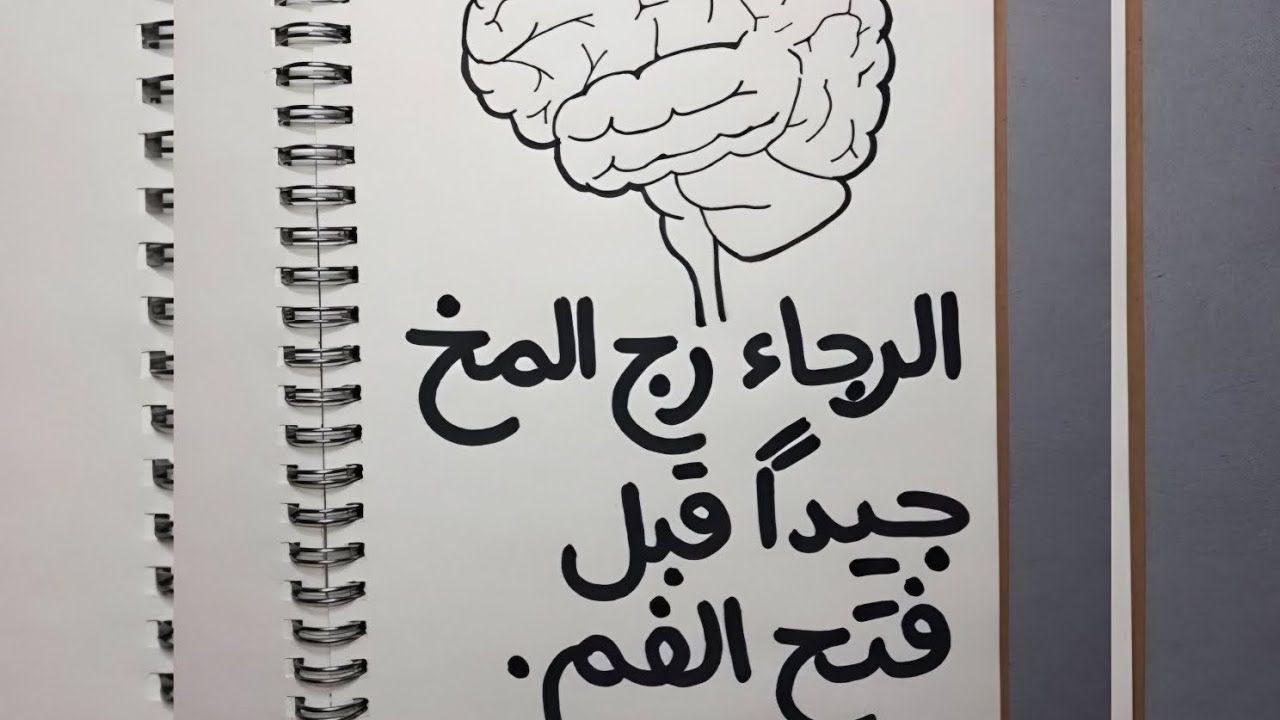 الرجاء رج المخ
جيداً قبل
فتح الفم.